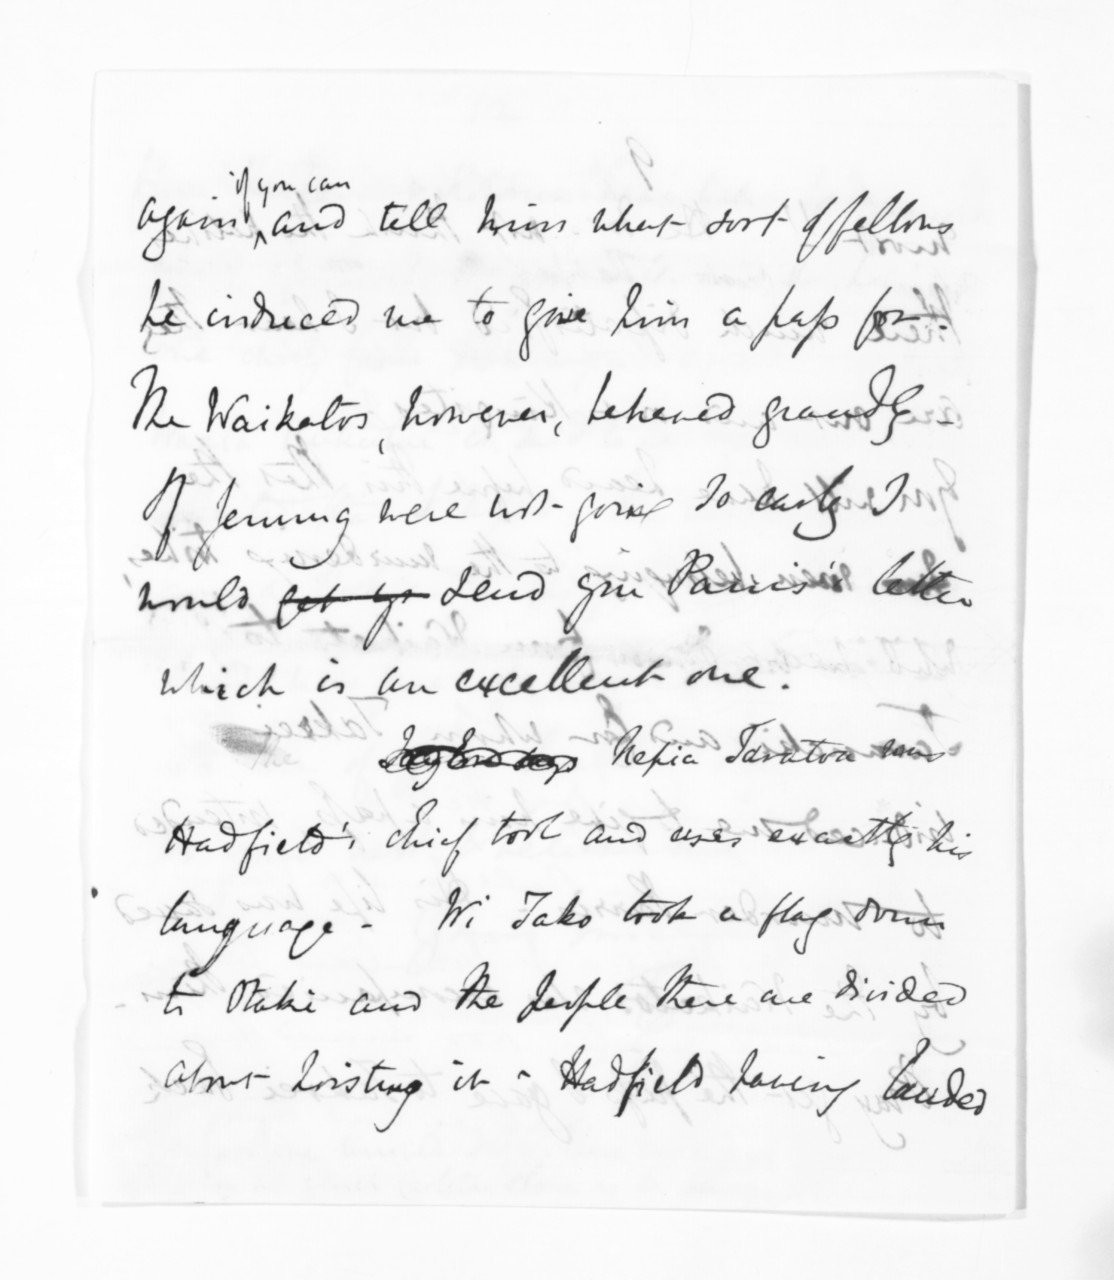 if you can
again, and tell him what sort of fellows
he induced me to give him a pass for -
The Waikatos, however, behaved grandly -
If Jenning were not going so early I
would get yr send you Parris's letter
which is an excellent one.
Nepia Taratoa was
Hadfield's chief tool and uses exactly his
language - Wi Tako took a flag down
to Otaki and the people there are divided
about hoisting it - Hadfield having landed